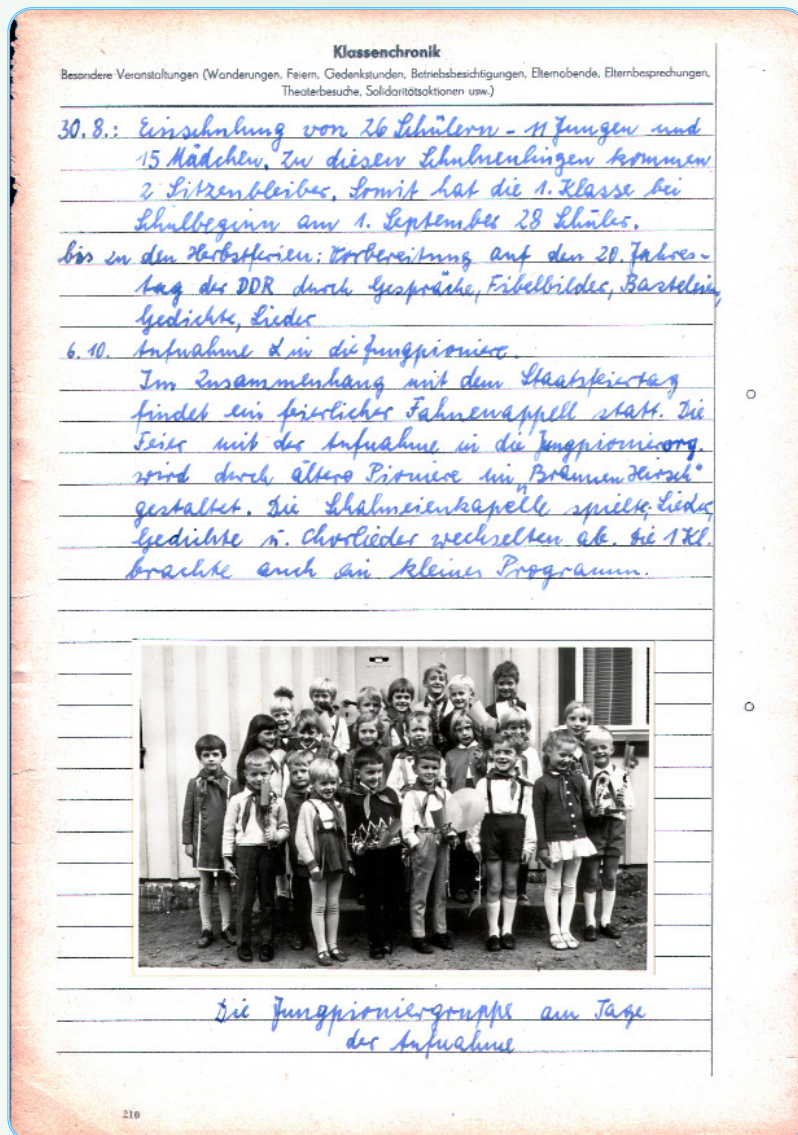 Klassenchronik
Besondere Veranstaltungen (Wanderungen, Feiern, Gedenkstunden, Betriebsbesichtigungen, Elternabende, Elternbesprechungen,
Theaterbesuche, Solidaritätsaktionen usw.)
30.8.: Einschulung von 26 Schülern - 11 Jungen und
15 Mädchen. Zu diesen Schulneulingen kommen
2 Sitzenbleiber. Somit hat die 1. Klasse bei
Schulbeginn am 1. September 28 Schüler.
bis zu den Herbstferien: Vorbereitung auf den 20. Jahres-
tag der DDR durch Gespräche, Fibelbilder, Basteleien,
Gedichte, Lieder
6.10. Aufnahme in die Jungpioniere.
Im Zusammenhang mit dem Staatsfeiertag
findet ein feierlicher Fahnenappell statt. Die
Feier mit der Aufnahme in die Jungpionierorg.
wird durch ältere Pioniere im „Braunen Hirsch"
gestaltet. Die Schalmeienkapelle spielte, Lieder,
Gedichte u. Chorlieder wechselten ab. Die 1 Kl.
brachte auch ein kleines Programm.
Die Jungpioniergruppe am Tage
der Aufnahme
210